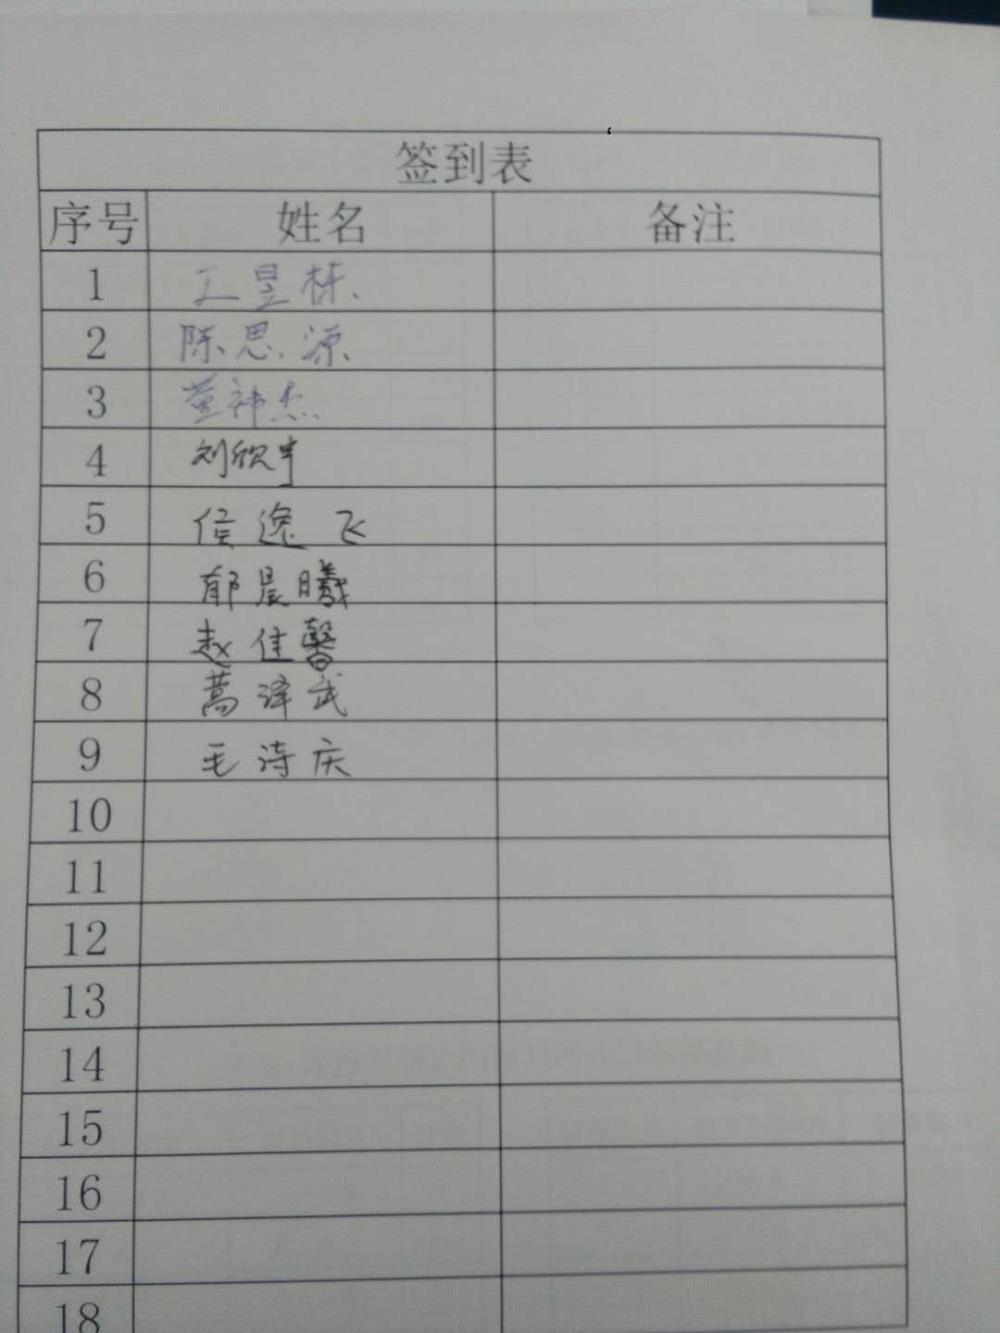 签到表
序号 姓名 备注
1 王昱栋
2 陈思源
3 董祎杰
4 刘欣宇
5 侯逸飞
6 郁晨曦
7 赵佳馨
8 蒿泽武
9 毛诗庆
10
11
12
13
14
15
16
17
18